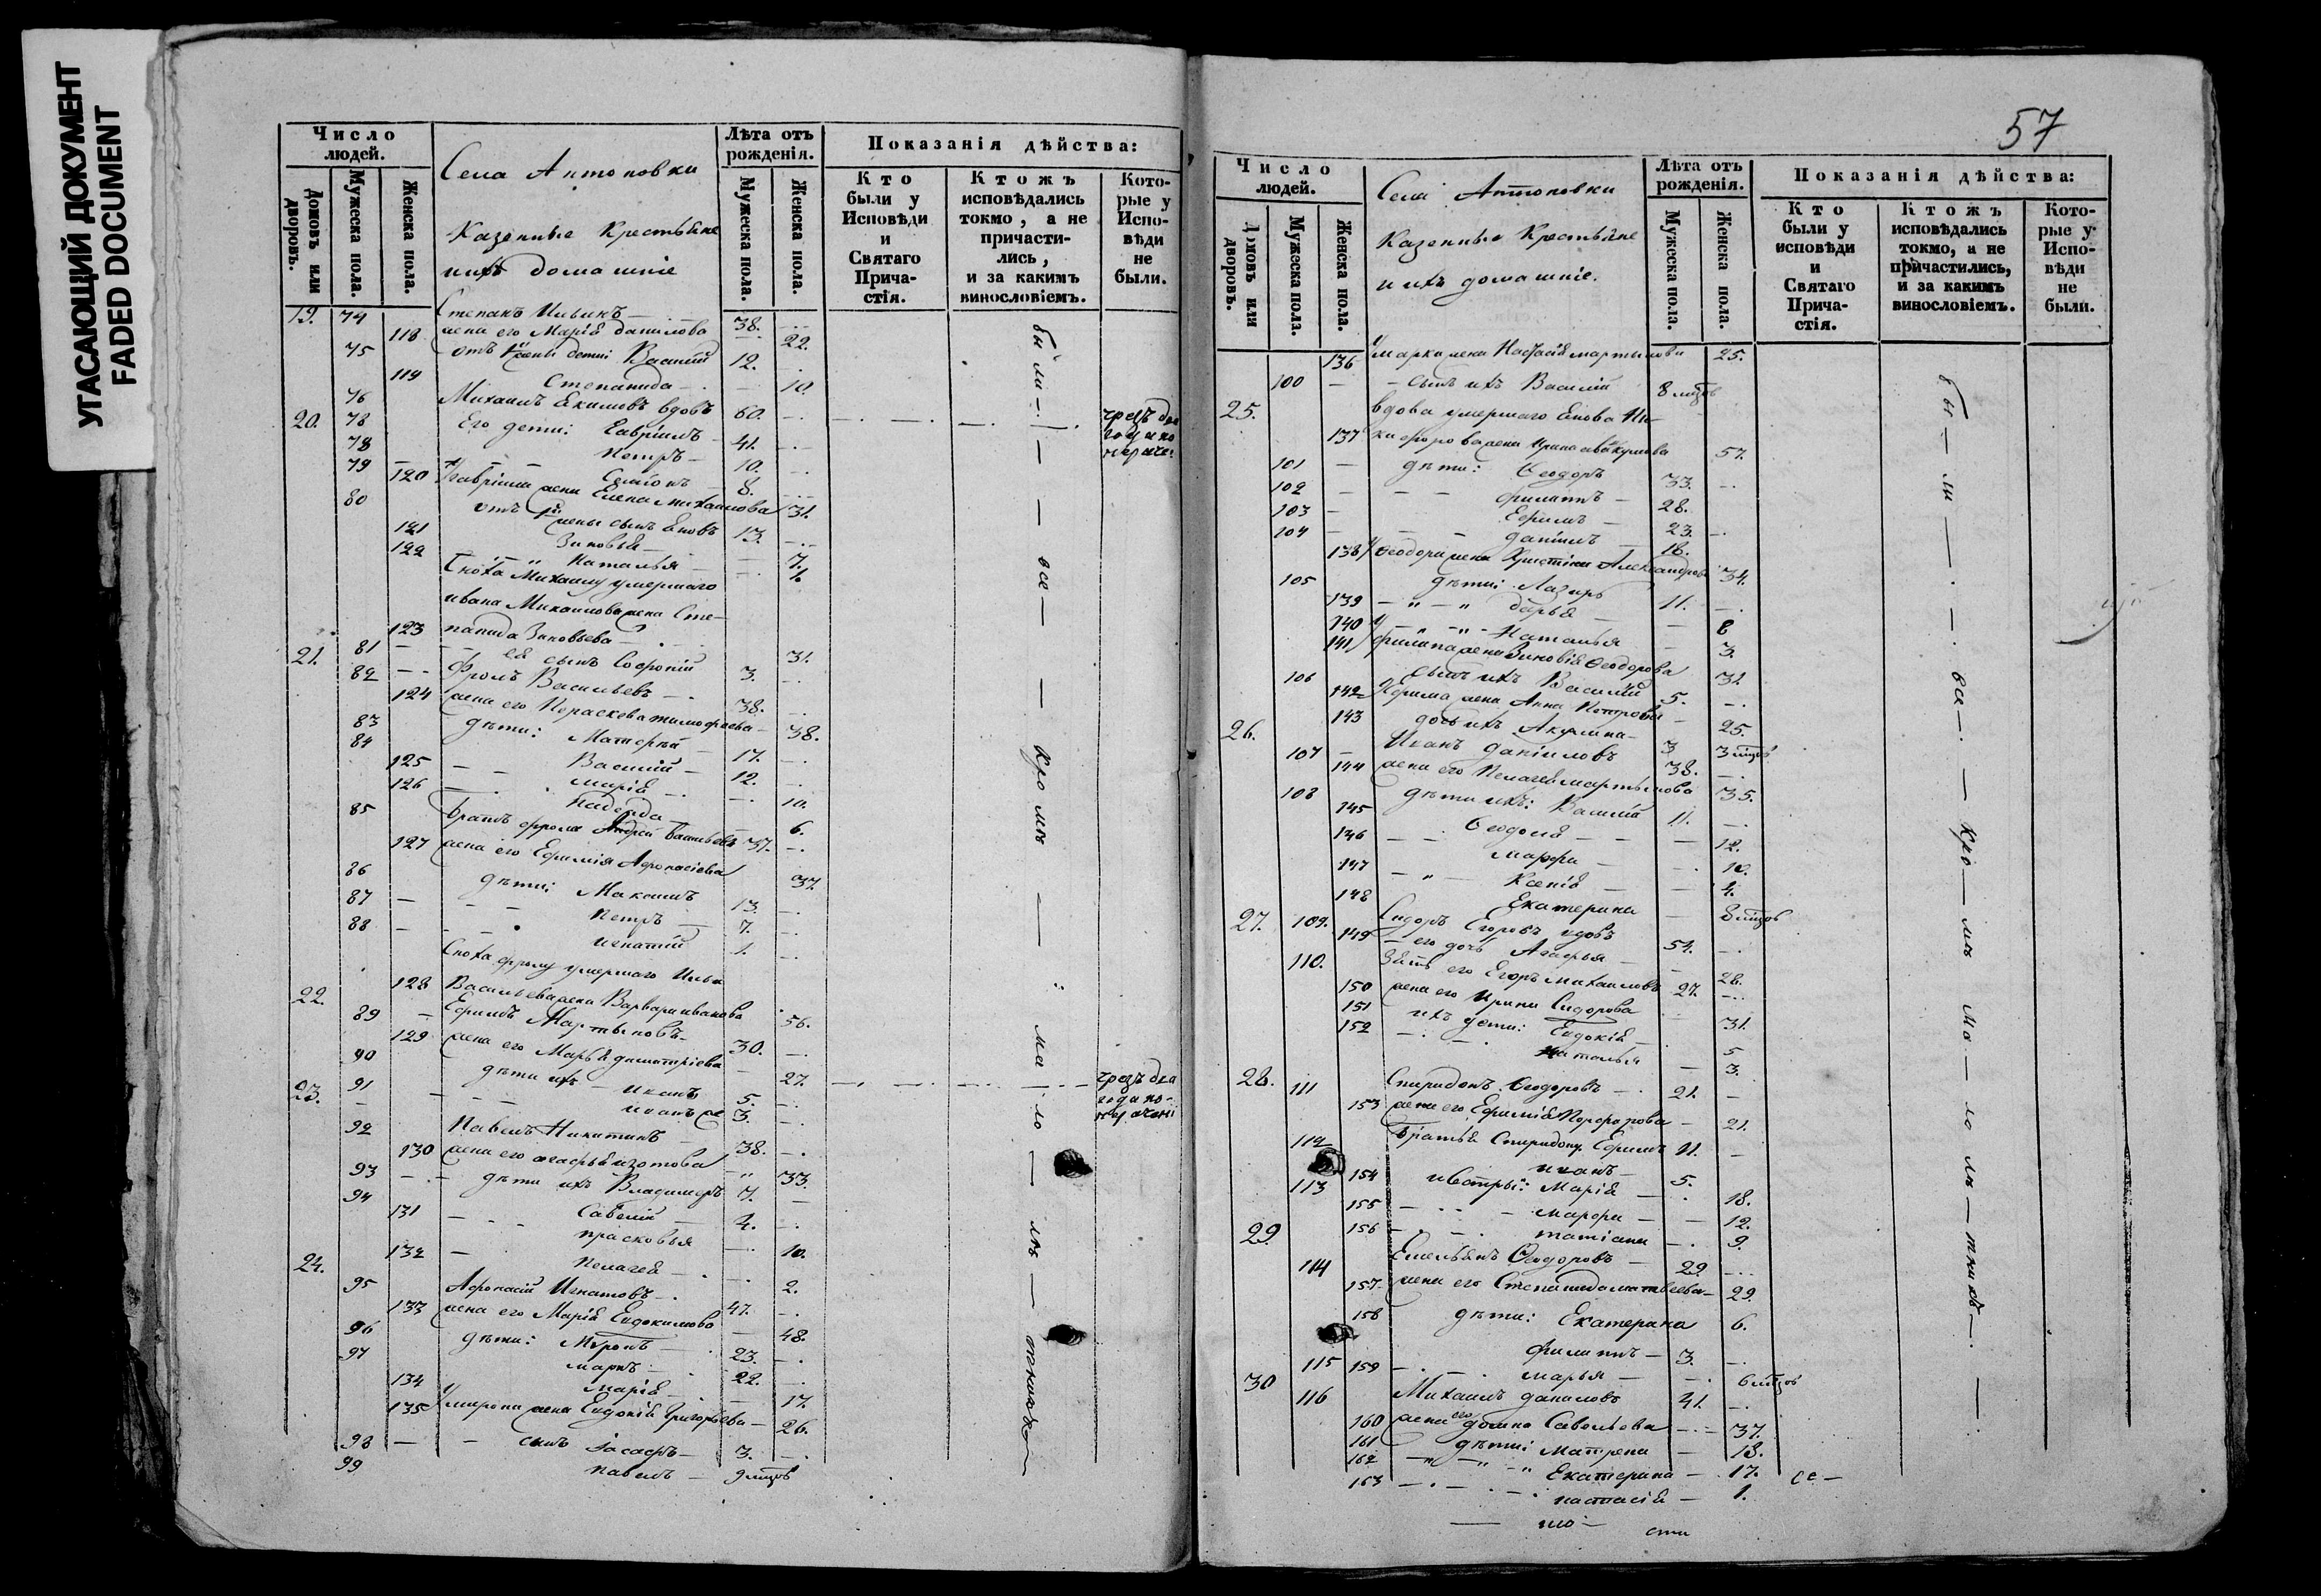 УГАСАЮЩИЙ ДОКУМЕНТ
FADED DOCUMENT
Число людей.
Домовъ или дворовъ.
Мужеска пола.
Женска пола.
Села Антоновки
Казенные Крестьяне
ихъ домашніе
Лѣта отъ рожденія.
Мужеска пола.
Женска пола.
Показанія дѣйства:
Кто были у Исповѣди и Святаго Прича-стія.
Ктожъ исповѣдались токмо, а не причасти-лись, и за какимъ винословіемъ.
Кото-рые у Испо-вѣди не были.
19. 74 Степанъ Ильинъ 38.
118 жена его Марія Данилова 22.
75 Василій 12.
119 Степанида 10.
20. 76 Михаилъ Екимовъ вдовъ 60.
78 Его дети: Гавріилъ 41.
78 Петръ 10.
79 8.
120 Гавріила жена Елена Михаилова 31.
80 жены сынъ 13.
121 Зиновья 7.
122 Наталья
Сноха Михаилу умершаго
Ивана Михаилова жена Сте-
123 панида Зиновьева 31.
81 ея сынъ Софроній 3.
21. 82 Фролъ Васильевъ 38.
124 жена его Параскева Тимофеева 38.
83 дѣти: Матфей 17.
84 Василій 12.
125 Марія 10.
126 Надежда 6.
85 Братъ Фрола Андрей Васильевъ 37.
127 жена его Ефимія Афонасіева 37.
86 дѣти: Максимъ 13.
87 Петръ 7.
88 Игнатій 1.
Сноха Фролу умершаго Ильи
128 Васильева жена Варвара Иванова 56.
22. 89 Ефимъ Мартыновъ 30.
129 жена его Марья Димитріева 27.
90 дѣти ихъ Иванъ 5.
91 Иванъ же 3.
23. 92 Павелъ Никитинъ 38.
130 жена его Агафья Изотова 33.
93 дѣти ихъ Владимиръ 7.
94 Савелій 4.
131 Прасковья 10.
132 Пелагея 2.
24. 95 Афонасій Игнатовъ 47.
133 жена его Марія Евдокимова 48.
96 дѣти: Миронъ 23.
97 Маркъ 22.
134 Марія 17.
135 Мирона жена Евдокія Григорьева 26.
98 сынъ Іасафъ 3.
99 Павелъ 9 мѣцовъ
были все кромѣ малолѣтнихъ
57
Число людей.
Домовъ или дворовъ.
Мужеска пола.
Женска пола.
Села Антоповки
Казенные Крестьяне
и ихъ домашніе.
Лѣта отъ рожденія.
Мужеска пола.
Женска пола.
Показанія дѣйства:
Кто были у исповѣди и Святаго Прича-стія.
Ктожъ исповѣдались токмо, а не причастились, и за какимъ винословіемъ.
Кото-рые у Испо-вѣди не были.
136 Марка жена Настасія Мартынова 25.
100 сынъ ихъ Василій 8 мѣцов
25. вдова умершаго
137 57.
101 дѣти: Ѳеодоръ 33.
102 Филиппъ 28.
103 Ефимъ 23.
104 Даніилъ 18.
138 Ѳеодора жена Христина Александрова 34.
105 дѣти: Лазарь 11.
139 Дарья 8
140 Наталья 3.
141 Филипа жена Зиновія Ѳеодорова 31.
106 сынъ ихъ Василій 5.
142 Ефима жена Анна Петрова 25.
143 дочь ихъ Акулина 3 мѣцов
26. 107 Иванъ Даніиловъ 38.
144 жена его Пелагея Мартынова 35.
108 дѣти ихъ: Василій 11.
145 12.
146 Марфа 10.
147 Ксенія 4.
148 Екатерина 8 мѣцов
27. 109. Сидоръ Егоровъ вдовъ 54.
149 его дочь Агафья 28.
110. Зять его Егоръ Михаиловъ 27.
150 жена его Ирина Сидорова 31.
151 ихъ дети: Евдокія 5
152 Наталья 3.
28. 111 Спиридонъ Ѳеодоровъ 21.
153 жена его Ефимія 21.
112 Братья Спиридону Ефимъ 11.
113 Иванъ 5.
154 и сестры: Марія 18.
155 Марфа 12.
156 Татіана 9.
29. 114 Емельянъ Ѳеодоровъ 29.
157 жена его Степанида Матвеева 29.
158 дѣти: Екатерина 6.
115 Филиппъ 3.
159 Марья 6 мѣцов
30 116 Михаилъ Даниловъ 41.
160 жена его Домна Савельева 37.
161 дѣти: Матрена 18.
162 Екатерина 17.
163 Настасія 1.
были все кромѣ малолѣтнихъ